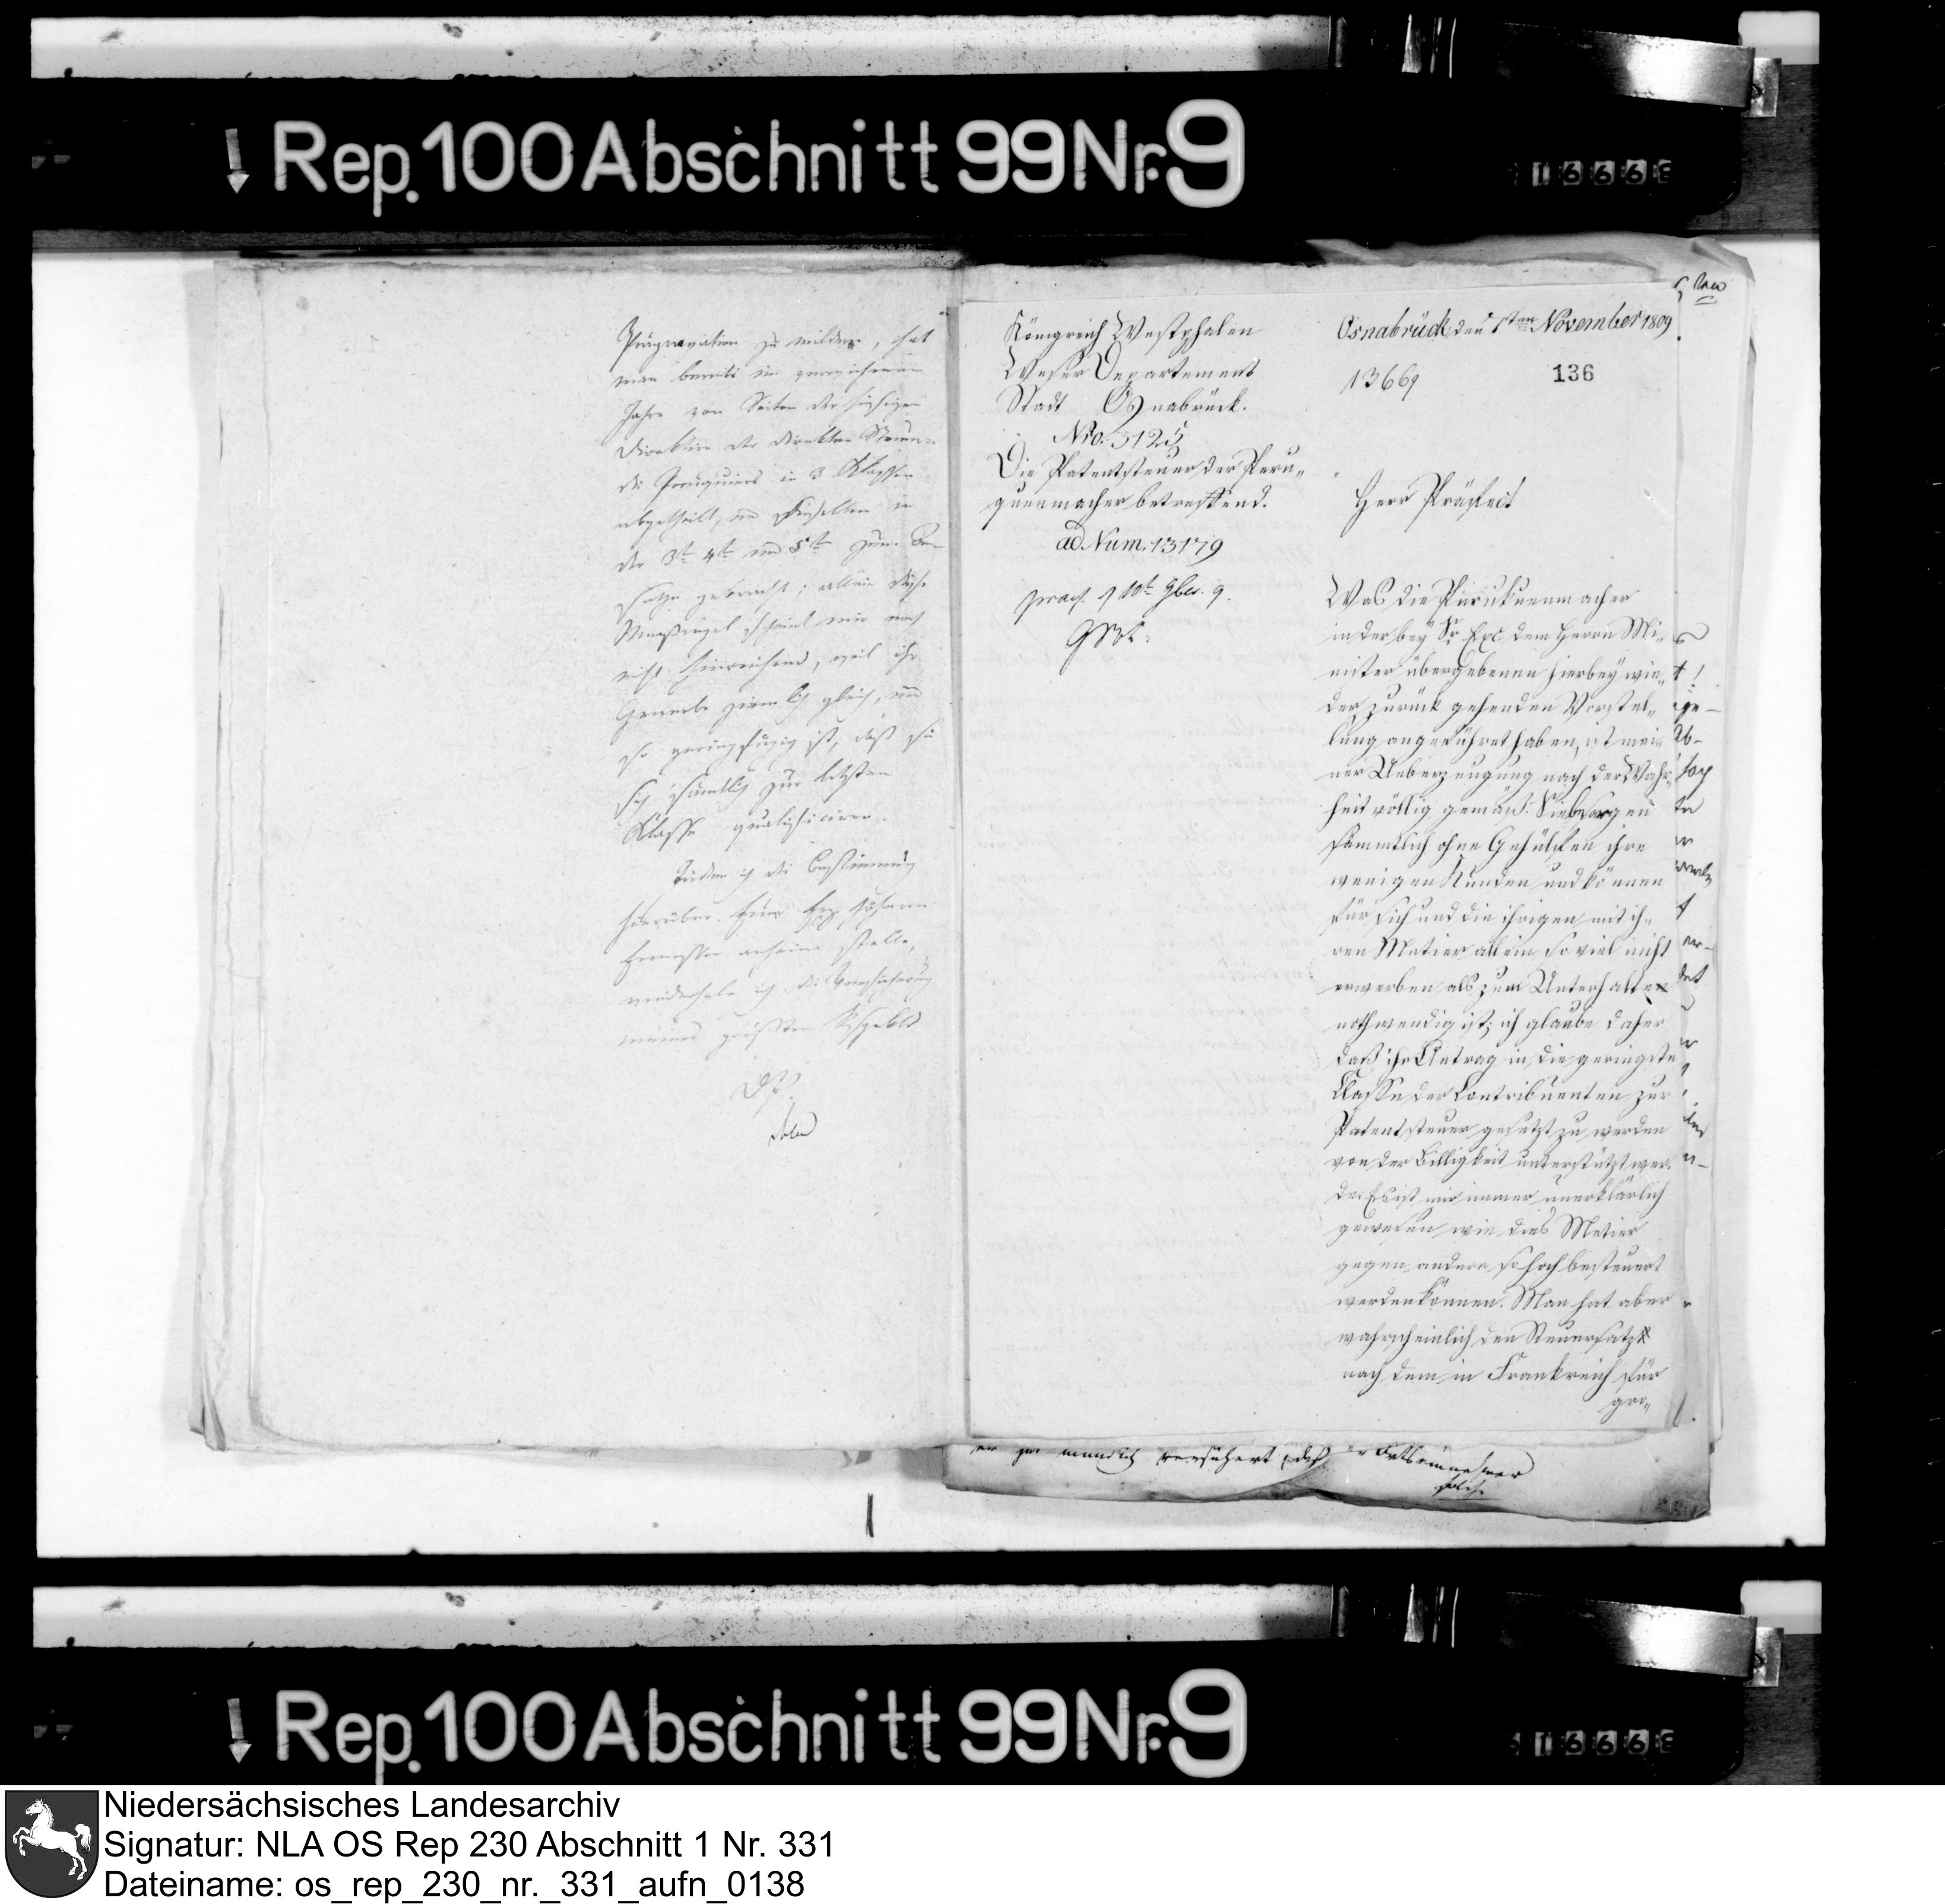 ↓ Rep. 100 Abschnitt 99 Nr. 9
16668
Prägravation zu mildern, hat
man bereits im verwichenen
Jahre von Seiten der hiesigen
Direktion der direkten Steuern
die Perruquiers in 3 Klassen
abgetheilt, und dieselben in
der 3te 4te und 5te zum An-
satze gebracht; allein diese
Maaßregel scheint mir noch
nicht hinreichend, weil ihr
Gewerbe ziemlich gleich, und
so geringfügig ist, daß sie
sich sämtlich zur letzten
Klasse qualificiren.
Indem ich die Bestimmung
hierüber Eurer Exz höherm
Ermessen anheim stelle,
wiederhole ich die Versicherung
meines größten Respekts
Königreich Westphalen
Weser Departement
Stadt Osnabrück.
Nro. 3125
Die Patentsteuer der Peru„
quenmacher betreffend.
ad Num. 13179
praes. 10t 9ber. 9.
Osnabrück den 7ten November 1809
13669
136
Herr Präfect
Was die Peruckenmacher
in der bey Sr Exc. dem Herrn Mi„
nister übergebenen hierbey wie„
der zurück gehenden Vorstel„
lung angeführet haben, ist mei„
ner Ueberzeugung nach der Wahr„
heit völlig gemäß. Sie besorgen
sämmtlich ohne Gehülfen ihre
wenigen Kunden und können
für sich und die ihrigen mit ih„
ren Metier allein so viel nicht
erwerben als zum Unterhalte
nothwendig ist; ich glaube daher
daß ihr Antrag in die geringste
Classe der Contribuenten zur
Patentsteuer gesetzt zu werden
von der Billigkeit unterstützt wer„
de. Es ist mir immer unerklärlich
gewesen wie dies Metier
gegen andere so hoch besteuert
werden können. Man hat aber
wahrscheinlich den Steuersatz
nach dem in Frankreich für
gro„
er zu mündlich versichert, daß der Ortseinnehmer
solche
↓ Rep. 100 Abschnitt 99 Nr. 9
16668
Niedersächsisches Landesarchiv
Signatur: NLA OS Rep 230 Abschnitt 1 Nr. 331
Dateiname: os_rep_230_nr._331_aufn_0138